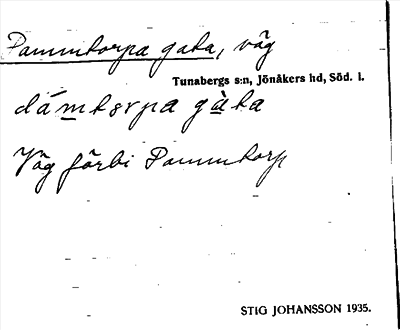 Dammtorpa gata, väg
Tunabergs s:n, Jönåkers hd, Söd. l.
dámtorpa gàta
Väg förbi Dammtorp
STIG JOHANSSON 1935.